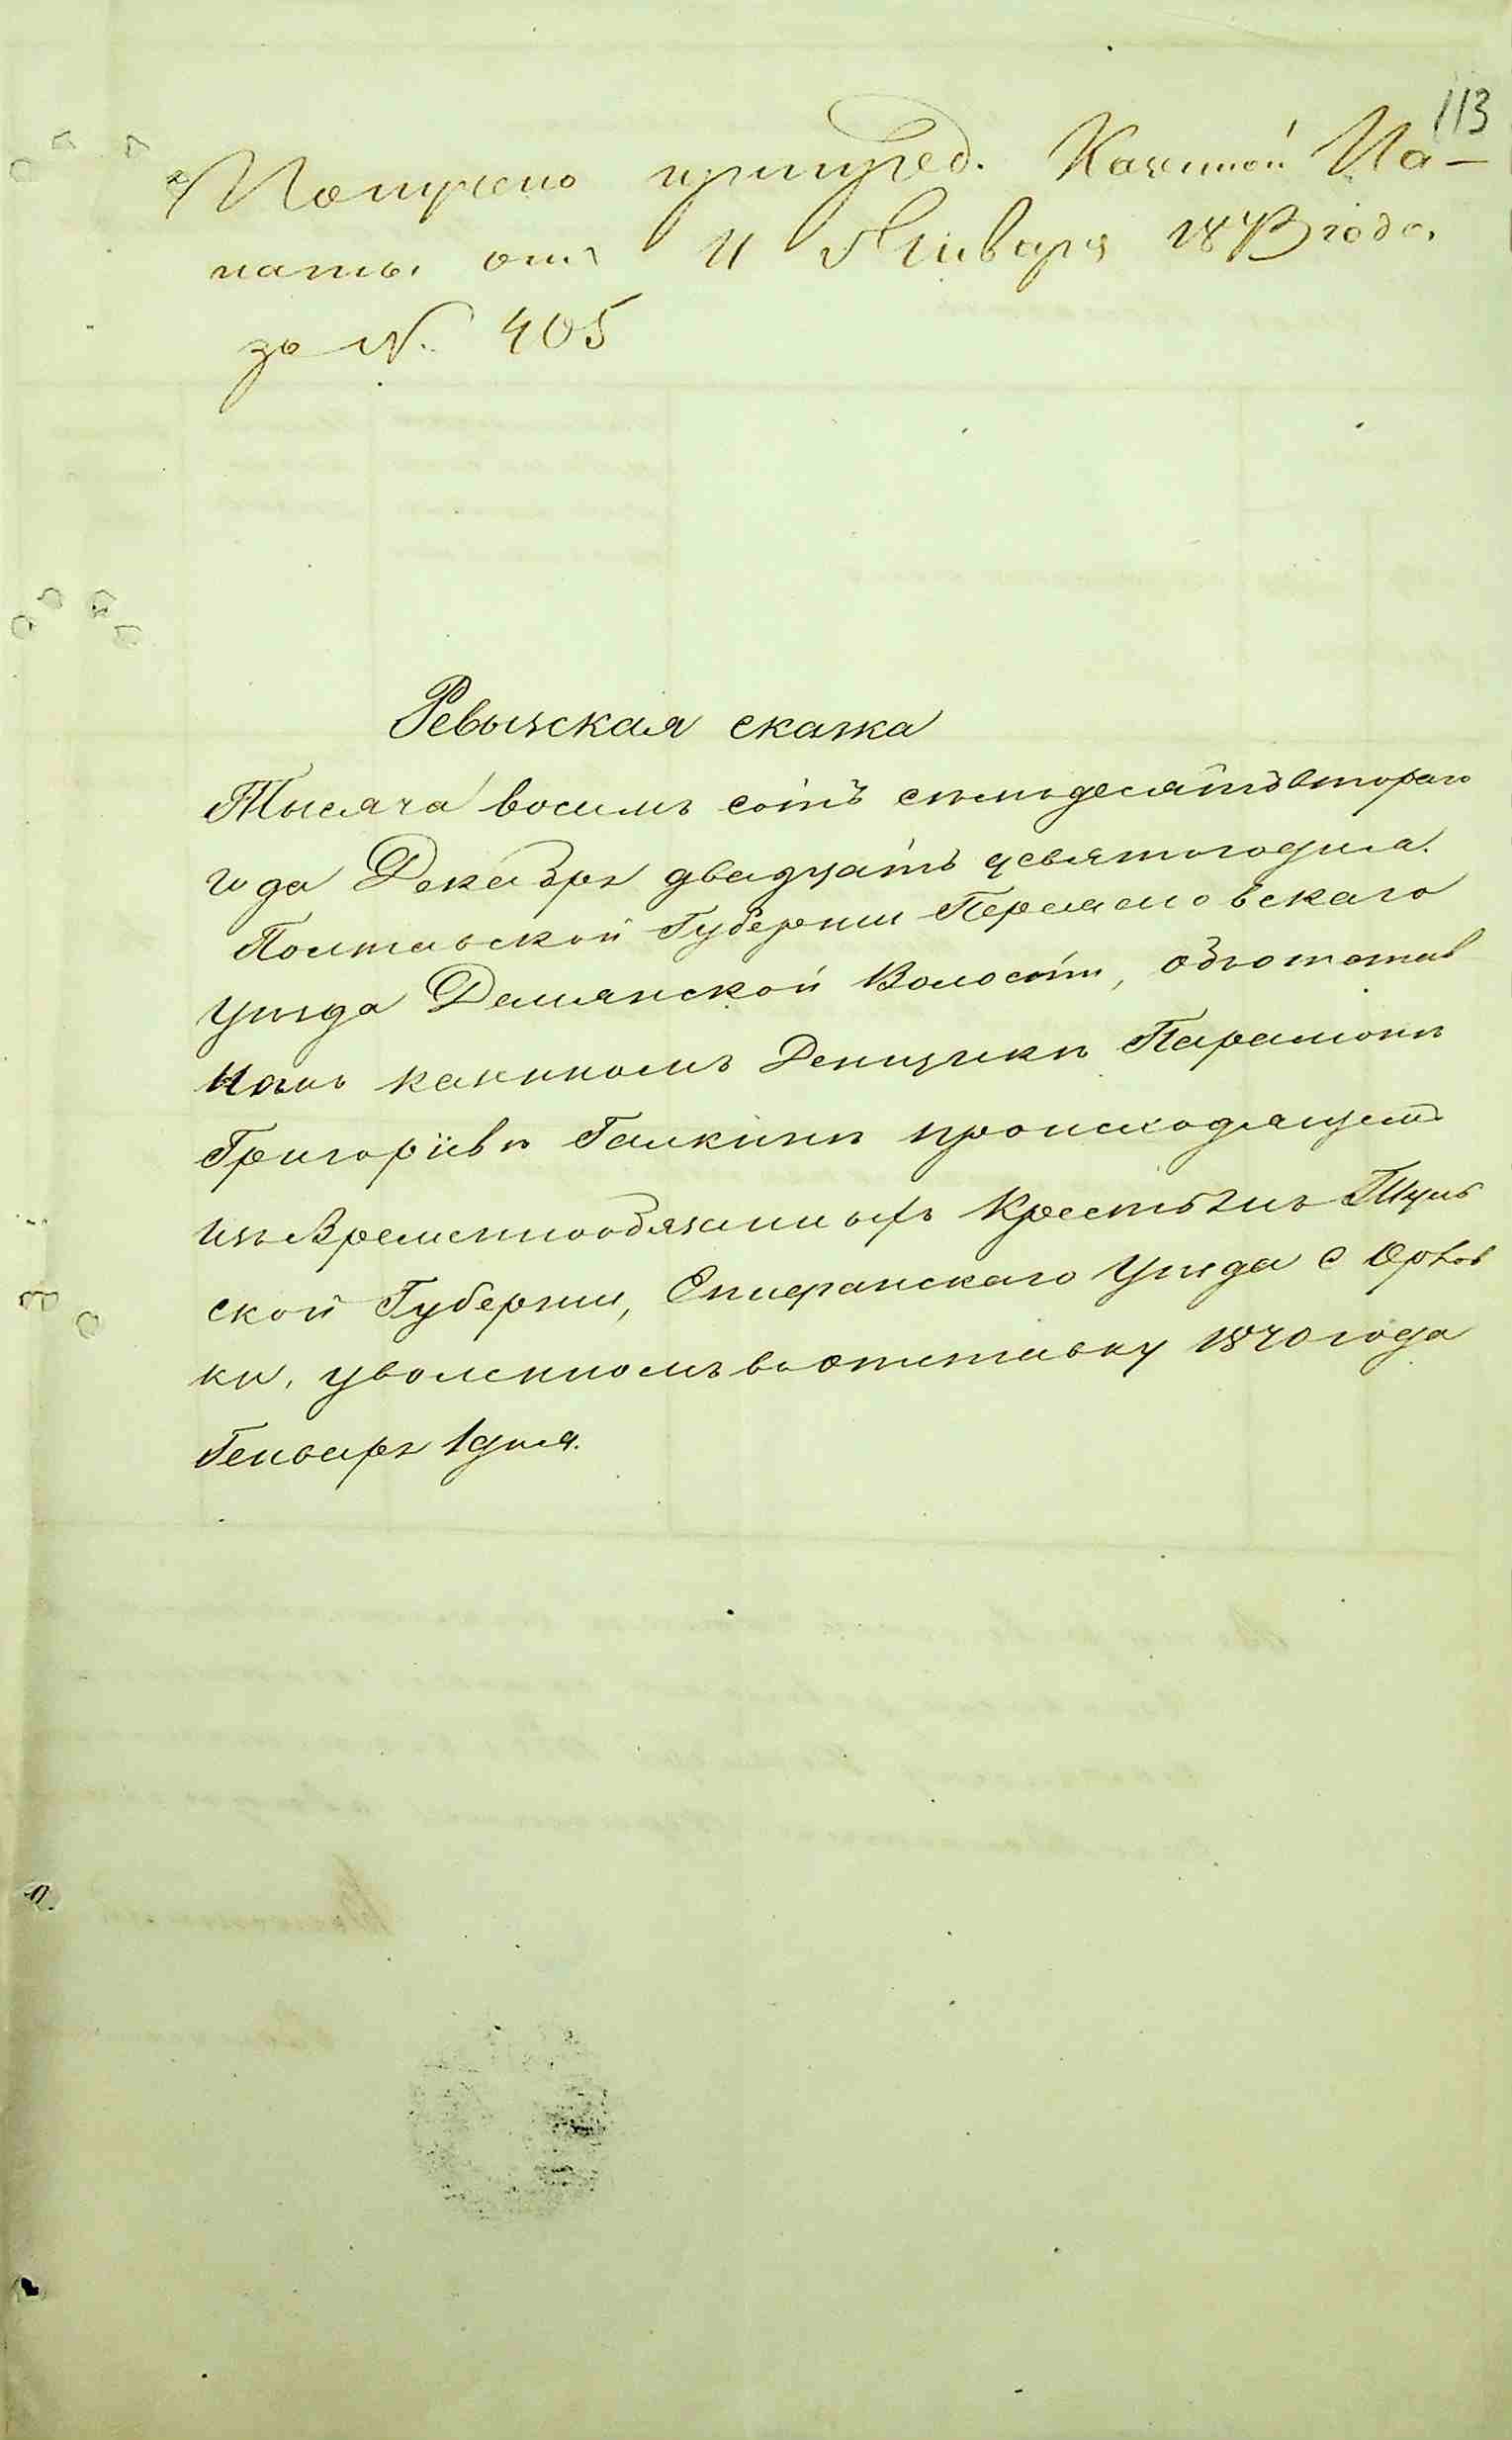 113
Получено при пред. Казенной Па-
латы от 11 Января 1873 года
за №. 405
Ревыжская скажка
Тысяча восемъ сотъ семъдесятъ втораго
года Декабря двадцать девятогодня.
Полтавской Губерніи Переясловскаго
Уѣзда Демянской Волости, объ отстав
номъ казенномъ Деньщикѣ Парамонѣ
Григоріевѣ Галкинѣ происходящемъ
изъ Временнообязанныхъ Крестьянъ Туль
ской Губерніи, Епифанскаго Уѣзда с Орлов
ки, уволенномъ въ отставку 1870 года
Генваря 1 дня.